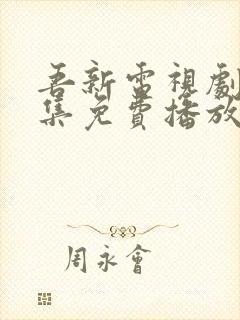 吾新雷視劇
集免費播放
周永會